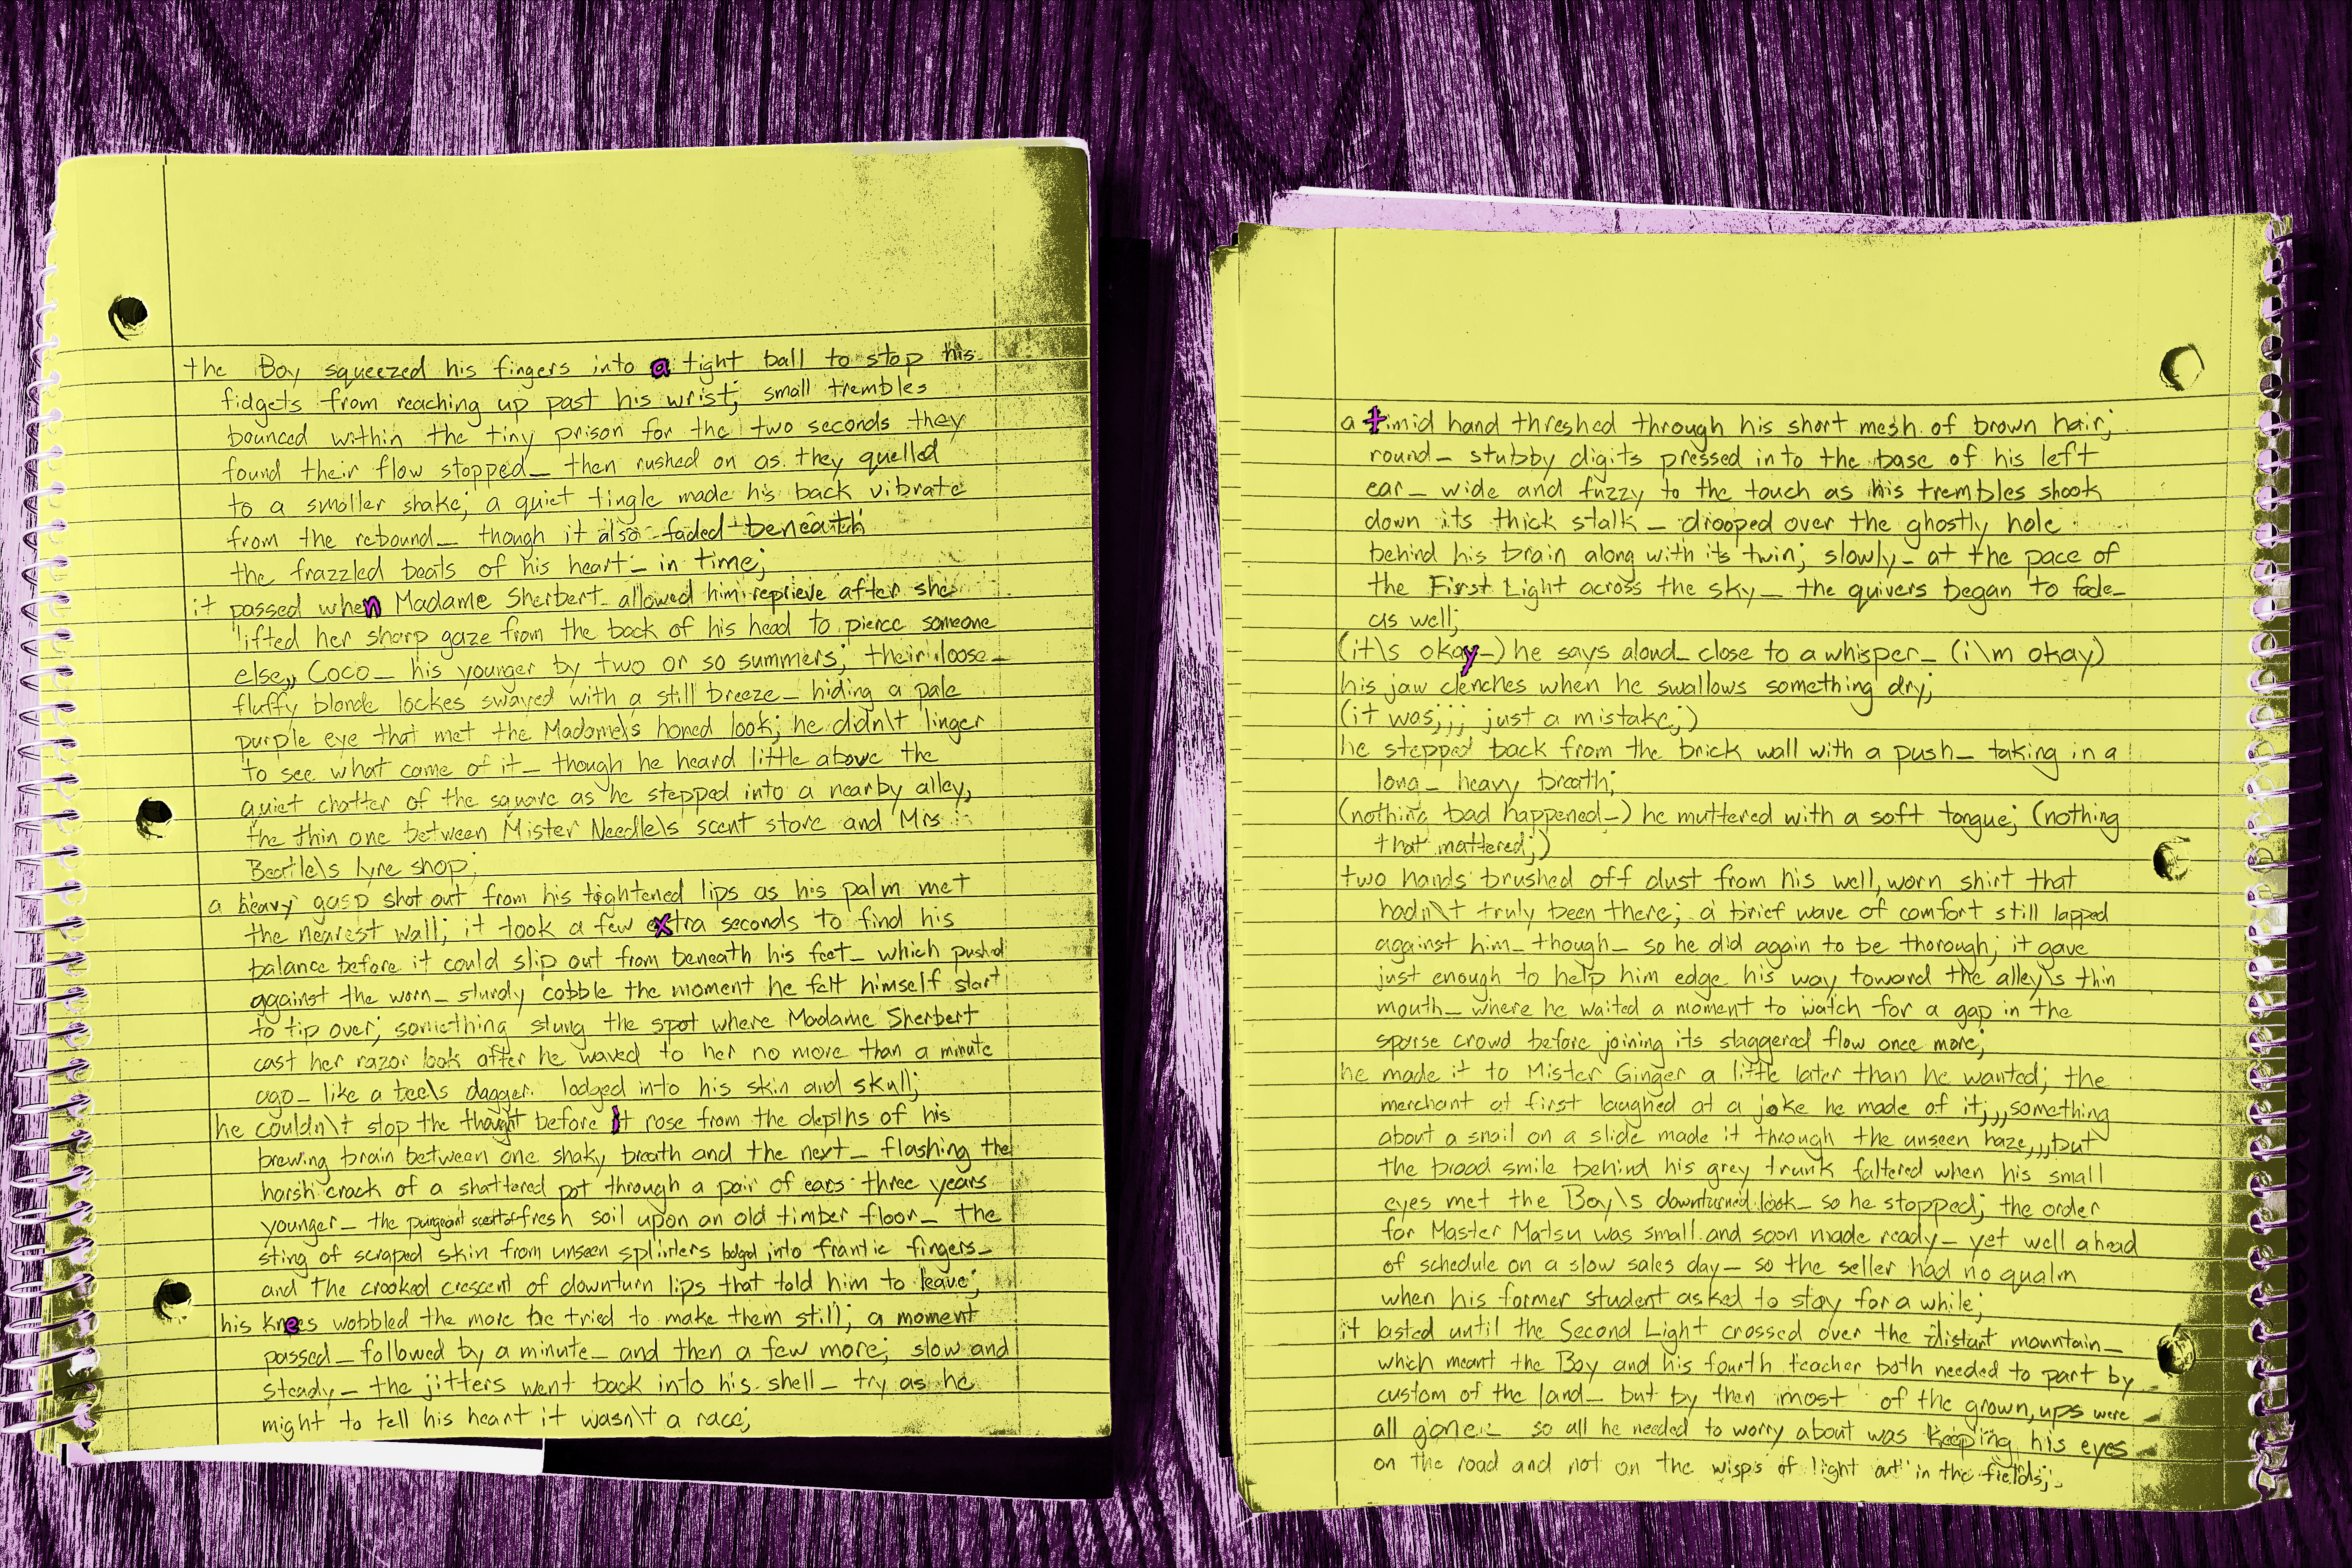 the Boy squeezed his fingers into a tight ball to stop his
fidgets from reaching up past his wrist; small trembles
bounced within the tiny prison for the two seconds they
found their flow stopped_ then rushed on as they quelled
to a smaller shake; a quiet tingle made his back vibrate
from the rebound_ though it also faded beneath
the frazzled beats of his heart_ in time;
it passed when Madame Sherbert allowed him reprieve after she
lifted her sharp gaze from the back of his head to pierce someone
else,, Coco_ his younger by two or so summers; their loose_
fluffy blonde lockes swayed with a still breeze_ hiding a pale
purple eye that met the Madame\s honed look; he didn\t linger
to see what came of it_ though he heard little above the
quiet chatter of the square as he stepped into a nearby alley,
the thin one between Mister Needle\s scent store and Mrs
Beatle\s lyre shop;
a heavy gasp shot out from his tightened lips as his palm met
the nearest wall; it took a few extra seconds to find his
balance before it could slip out from beneath his feet_ which pushed
against the worn_ sturdy cobble the moment he felt himself start
to tip over; something stung the spot where Madame Sherbert
cast her razor look after he waved to her no more than a minute
ago_ like a dagger lodged into his skin and skull;
he couldn\t stop the thought before it rose from the depths of his
brewing brain between one shaky breath and the next_ flashing the
harsh crack of a shattered pot through a pair of ears three years
younger_ the pungeant scent of fresh soil upon an old timber floor_ the
sting of scraped skin from unseen splinters into frantic fingers_
and the crooked crescent of downturn lips that told him to leave;
his knees wobbled the more he tried to make them still; a moment
passed_ followed by a minute_ and then a few more; slow and
steady_ the jitters went back into his shell_ try as he
might to tell his heart it wasn\t a race;
a timid hand threshed through his short mesh of brown hair;
round_ stubby digits pressed into the base of his left
ear_ wide and fuzzy to the touch as his trembles shook
down its thick stalk_ drooped over the ghostly hole
behind his brain along with its twin; slowly_ at the pace of
the First Light across the sky_ the quivers began to fade_
as well;
(it\s okay_) he says aloud_ close to a whisper_ (i\m okay)
his jaw clenches when he swallows something dry;
(it was;;; just a mistake;)
he stepped back from the brick wall with a push_ taking in a
long_ heavy breath;
(nothing bad happened_) he muttered with a soft tongue; (nothing
that mattered;)
two hands brushed off dust from his well,worn shirt that
hadn\t truly been there; a brief wave of comfort still lapped
against him_ though_ so he did again to be thorough; it gave
just enough to help him edge his way toward the alley\s thin
mouth_ where he waited a moment to watch for a gap in the
sparse crowd before joining its staggered flow once more;
he made it to Mister Ginger a little later than he wanted; the
merchant at first laughed at a joke he made of it,,, something
about a snail on a slide made it through the unseen haze,,, but
the broad smile behind his grey trunk faltered when his small
eyes met the Boy\s downturned look_ so he stopped; the order
for Master Matsu was small and soon made ready_ yet well ahead
of schedule on a slow sales day_ so the seller had no qualm
when his former student asked to stay for a while;
it lasted until the Second Light crossed over the distant mountain_
which meant the Boy and his fourth teacher both needed to part by
custom of the land_ but by then most of the grown,ups were
all gone_ so all he needed to worry about was keeping his eyes
on the road and not on the wisps of light out in the fields;